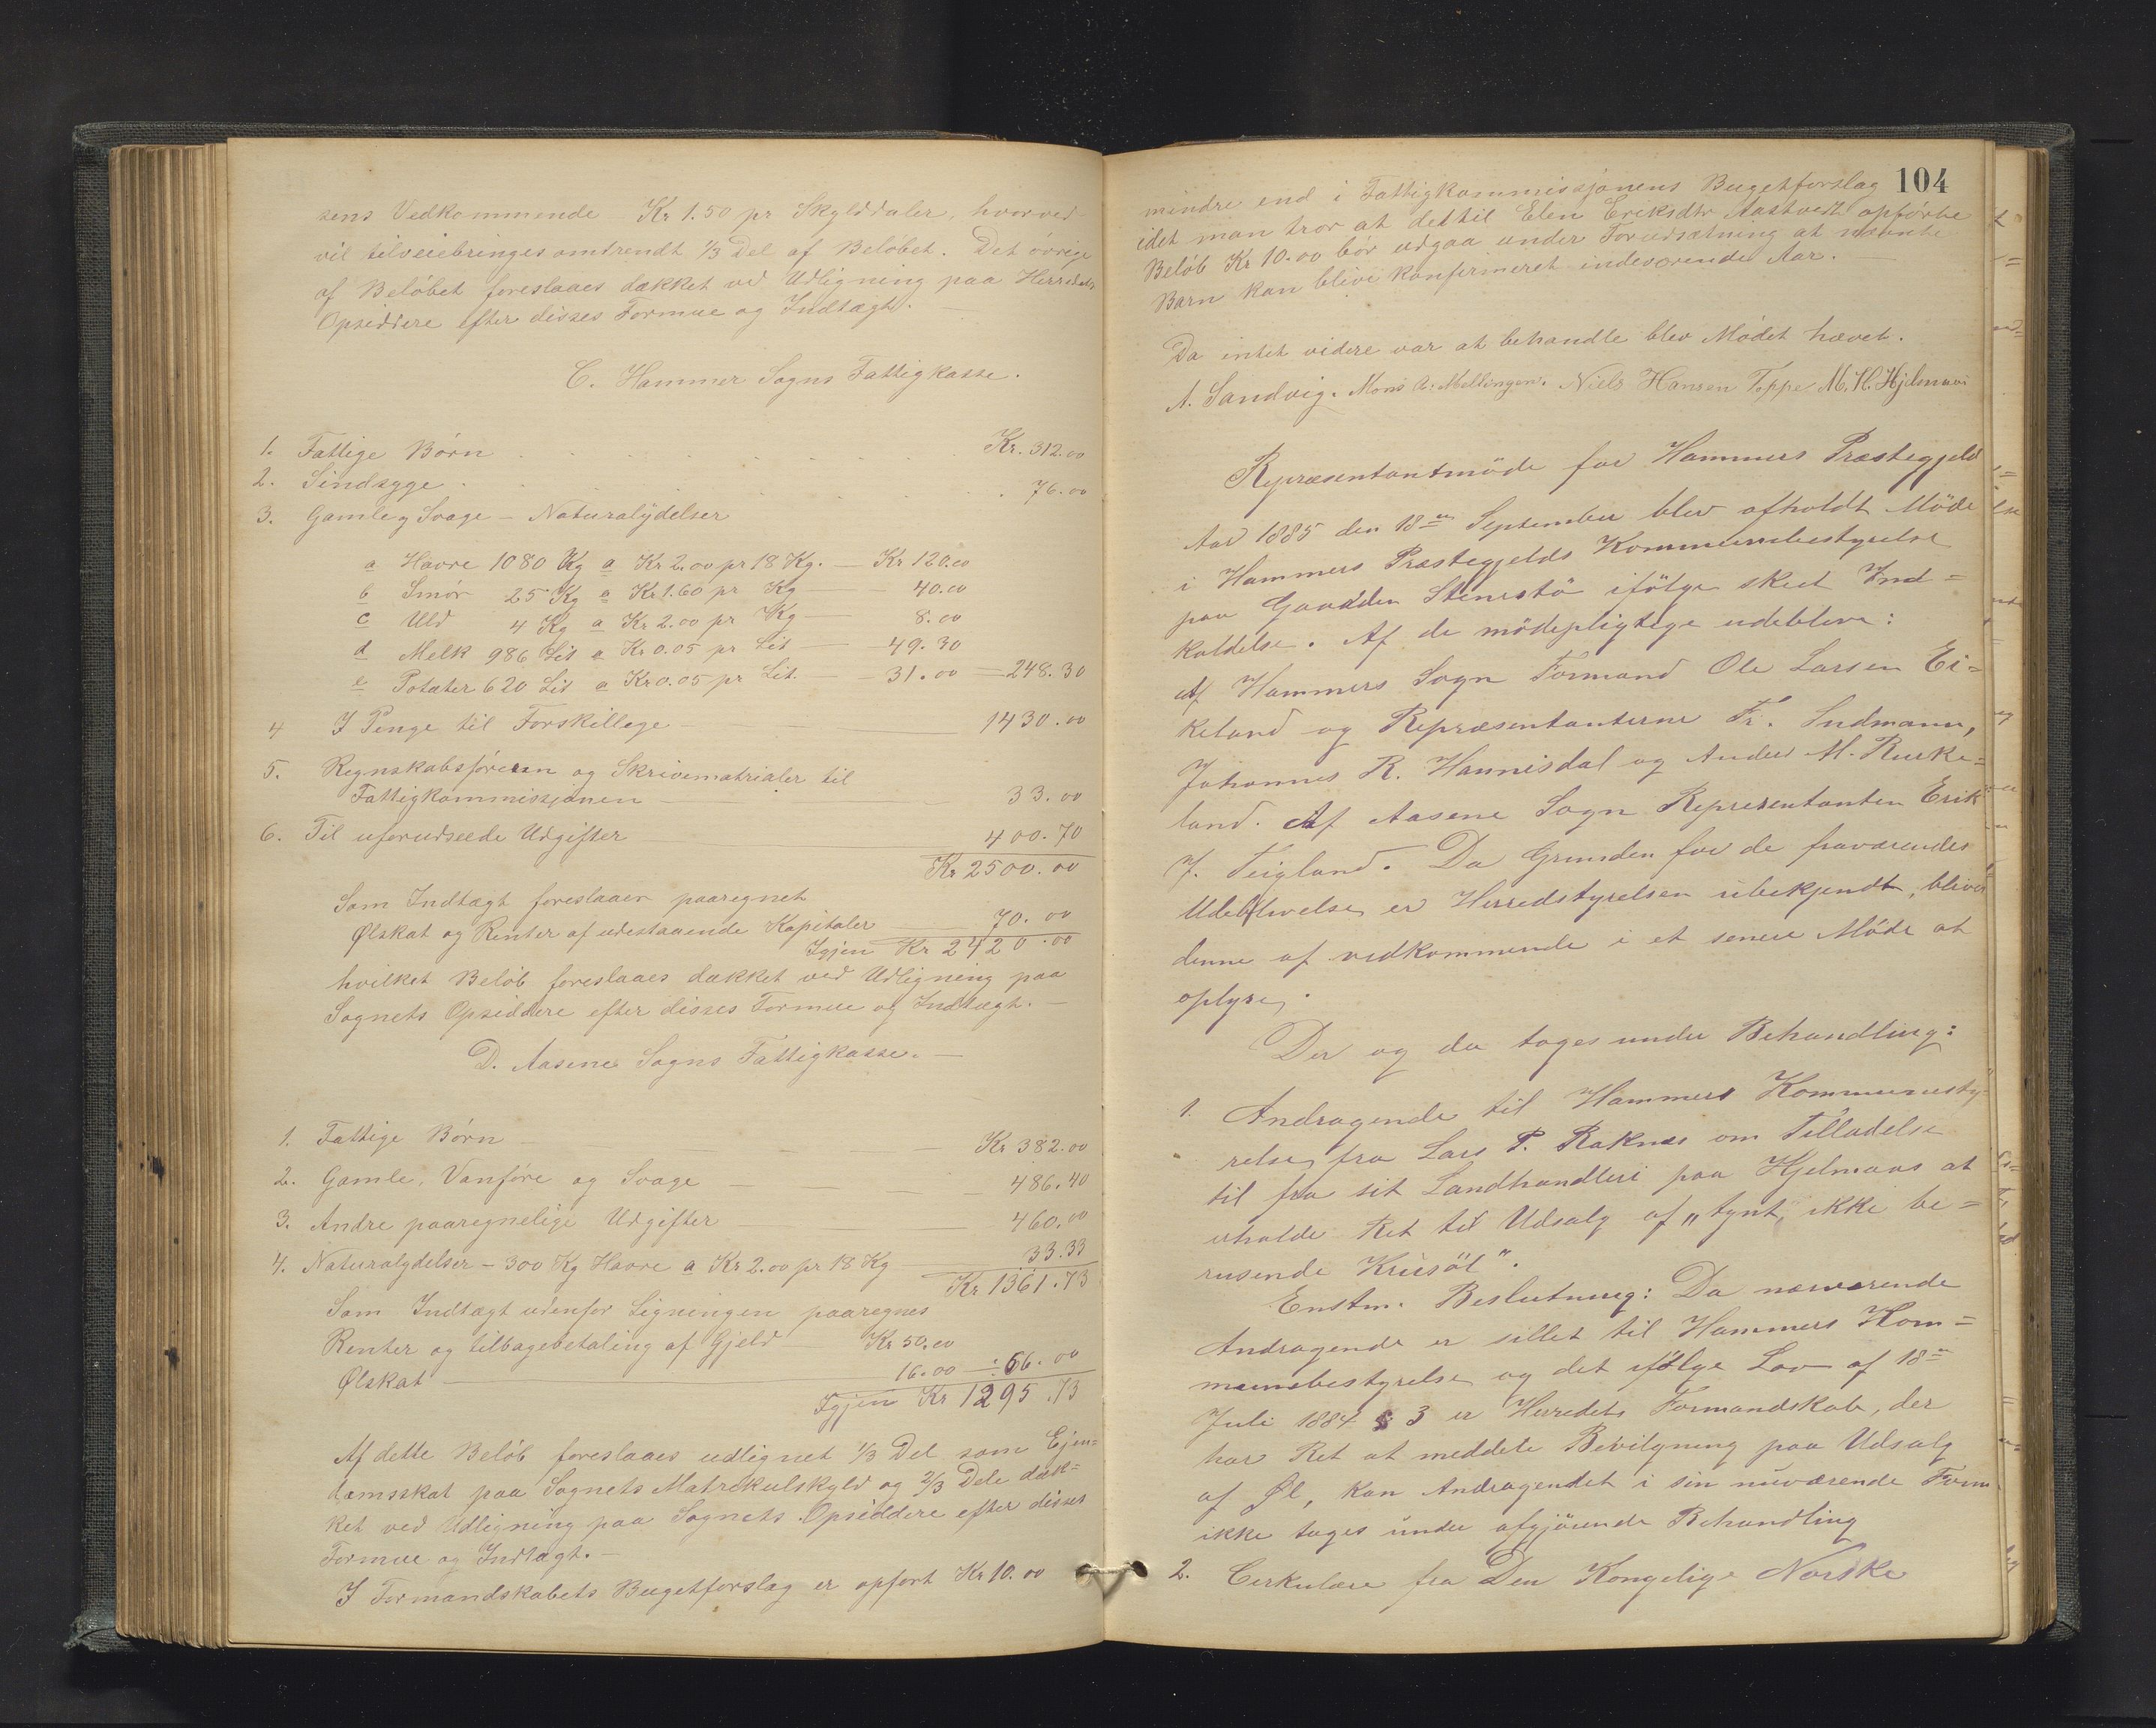 sens Vedkommende Kr 1.50 pr Skylddaler, hvorved
vil tilveiebringes omtrendt 1/3 Del af Beløbet. Det øvrige
af Beløbet foreslaaes dækket ved Udligning paa Herredets
Opsiddere efter disses Formue og Indtægt.
C. Hammer Sogns Fattigkasse.
1. Fattige Børn Kr. 312.00
2. Sindsyge 76.00
3. Gamle og Svage - Naturalydelser
a Havre 1080 Kg a Kr 2.00 pr 18 Kg. — Kr 120.00
b Smør 25 Kg a Kr 1.60 pr Kg — 40.00
c Uld 4 Kg a Kr 2.00 pr Kg — 8.00
d Melk 986 Lit a Kr 0.05 pr Lit — 49.30
e Potæter 620 Lit a Kr 0.05 pr Lit. — 31.00 — 248.30
4 I Penge til Forskillege — 1430.00
5. Regnskabsføreren og Skrivematrialer til
Fattigkommissjonen — 33.00
6. Til uforudseede Udgifter 400.70
Kr 2500.00
Som Indtægt foreslaaes paaregnet
Ølskat og Renter af udestaaende Kapitaler 70.00
Igjen Kr 2420.00
hvilket Beløb foreslaaes dækket ved Udligning paa
Sognets Opsiddere efter disses Formue og Indtægt. —
D. Aasene Sogns Fattigkasse. —
1. Fattige Børn — Kr 382.00
2. Gamle, Vanføre og Svage — 486.40
3. Andre paaregnelige Udgifter — 460.00
4. Naturalydelser - 300 Kg Havre a Kr 2.00 pr 18 Kg 33.33
Kr 1361.73
Som Indtægt udenfor Ligningen paaregnes
Renter og tilbagebetaling af Gjeld — Kr 50.00
Ølskat — 16.00 — ÷ 66.00
Igjen Kr 1295.73
Af dette Beløb foreslaaes udlignet 1/3 Del som Ejen=
damsskat paa Sognets Matrikulskyld og 2/3 Dele dæk=
ket ved Udligning paa Sognets Opsiddere efter disses
Formue og Indtægt. —
I Formandskabets Bugetforslag er opført Kr 10.00
104
mindre end i Fattigkommissjonens Bugetforslag
idet man tror at det til Elen Eriksdtr Aastvedt opførte
Beløb Kr 10.00 bør udgaa under Forudsætning at nævnte
Barn kan blive konfirmeret indeværende Aar. —
Da intet videre var at behandle blev Mødet hævet.
A. Sandvig. Mons A. Mellingen. Niels Hansen Toppe M. H. Hjelmaas
Repræsentantmøde for Hammers Præstegjeld
Aar 1885 den 18de September blev afholdt Møde
i Hammers Præstegjelds Kommunebestyrelse
paa Gaarden Stenestø ifølge skeet Ind=
kaldelse. Af de mødepligtige udebleve:
Af Hammers Sogn Formand Ole Larsen Ei=
keland og Repræsentanterne Fr. Sudmann,
Johannes R. Hannisdal og Anders M. Ruske=
land. Af Aasene Sogn Representanten Erik
J. Teigland. Da Grunden for de fraværendes
Udeblivelse er Herredstyrelsen ubekjendt, bliver
denne af vedkommende i et senere Møde at
oplyse.
Der og da toges under Behandling:
1. Andragende til Hammers Kommunesty-
relse fra Lars P. Raknes om Tilladelse
til fra sit Landhandleri paa Hjelmaas at
erholde Ret til Udsalg af „tynt, ikke be=
rusende Krusøl".
Enstm. Beslutning: Da nærværende
Andragende er stillet til Hammers Kom=
munebestyrelse og det ifølge Lov af 18de
Juli 1884 § 3 er Herredets Formandskab, der
har Ret at meddele Bevilgning paa Udsalg
af Øl, kan Andragendet i sin nuværende Form
ikke tages under afgjørende Behandling
2. Cerkulære fra Den Kongelige Norske